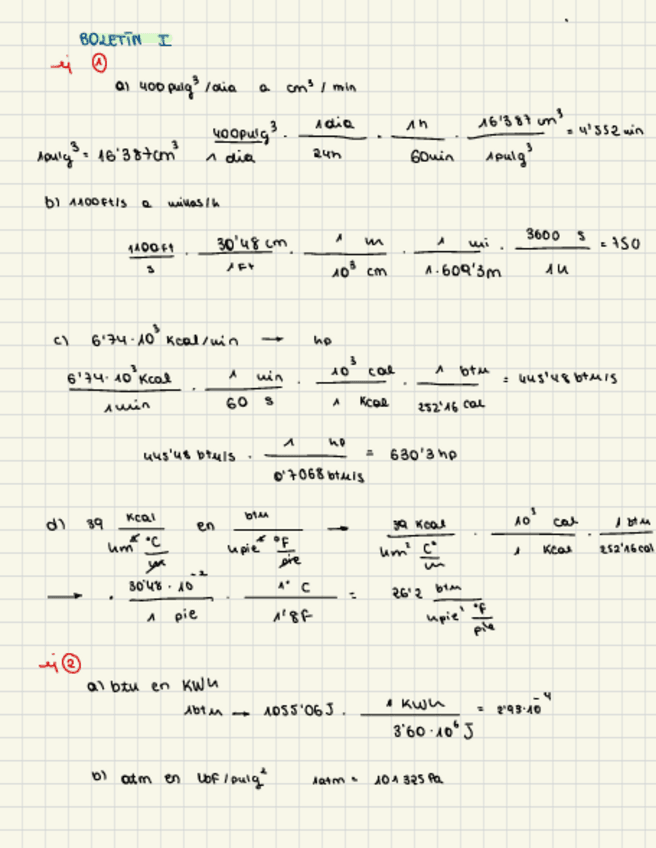 BOLETÍN I
ej ①
a) 400 pulg³/dia a cm³/min
1pulg³ = 16'387cm³ 400pulg³/1 dia · 1dia/24h · 1h/60min · 16'387 cm³/1pulg³ = 4'552 min
b) 1100ft/s a millas/h
1100ft/s · 30'48 cm/1Ft · 1 m/10³ cm · 1 mi/1.609'3m · 3600 s/1h = 750
c) 6'74·10³ Kcal/min → hp
6'74·10³Kcal/1min · 1 min/60 s · 10³ cal/1 Kcal · 1 btu/252'16 cal = 445'48 btu/s
445'48 btu/s · 1 hp/0'7068btu/s = 630'3 hp
d) 39 Kcal/hm² °C/m en btu/hpie² °F/pie → 39 Kcal/hm² C°/m · 10³ cal/1 Kcal · 1 btu/252'16cal
→ · 30'48·10⁻²/1 pie · 1° C/1'8F = 26'2 btu/hpie² °F/pie
ej ②
a) btu en KWh
1btu → 1055'06J · 1 KWh/3'60·10⁶ J = 2'93·10⁻⁴
b) atm en lbf/pulg² 1atm = 101325 Pa